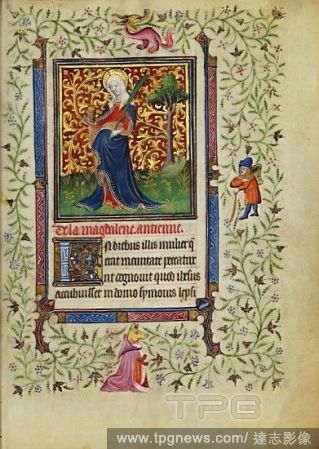 De la magdalene. antienne.
In diebus illis mulier q̄
erat in ciuitate peccatrix
ut cognouit quod ihesus
accubuisset in domo symonis
TPG
www.tpgnews.com/ 達志影像